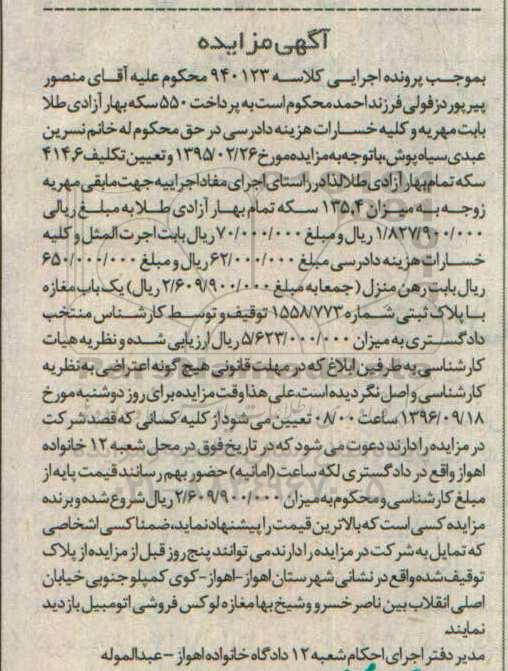 آگهی مزایده
بموجب پرونده اجرایی کلاسه ۹۴۰۱۲۳ محکوم علیه آقای منصور
پیرپور دزفولی فرزند احمد محکوم است به پرداخت ۵۵۰ سکه بهار آزادی طلا
بابت مهریه و کلیه خسارات هزینه دادرسی در حق محکوم له خانم نسرین
عبدی سیاه پوش، باتوجه به مزایده مورخ ۱۳۹۵/۰۲/۲۶ و تعیین تکلیف ۴۱۴٫۶
سکه تمام بهار آزادی طلا لذا در راستای اجرای مفاد اجراییه جهت مابقی مهریه
زوجه به میزان ۱۳۵٫۴ سکه تمام بهار آزادی طلا به مبلغ ریالی
۱/۸۲۷/۹۰۰/۰۰۰ ریال و مبلغ ۷۰/۰۰۰/۰۰۰ ریال بابت اجرت المثل و کلیه
خسارات هزینه دادرسی مبلغ ۶۲/۰۰۰/۰۰۰ ریال و مبلغ ۶۵۰/۰۰۰/۰۰۰
ریال بابت رهن منزل (جمعا به مبلغ ۲/۶۰۹/۹۰۰/۰۰۰ ریال) یک باب مغازه
با پلاک ثبتی شماره ۱۵۵۸/۷۷۳ توقیف و توسط کارشناس منتخب
دادگستری به میزان ۵/۶۲۳/۰۰۰/۰۰۰ ریال ارزیابی شده و نظریه هیات
کارشناسی به طرفین ابلاغ که در مهلت قانونی هیچ گونه اعتراضی به نظریه
کارشناسی واصل نگردیده است. علی هذا وقت مزایده برای روز دوشنبه مورخ
۱۳۹۶/۰۹/۱۸ ساعت ۰۸/۰۰ تعیین می شود از کلیه کسانی که قصد شرکت
در مزایده را دارند دعوت می شود که در تاریخ فوق در محل شعبه ۱۲ خانواده
اهواز واقع در دادگستری لکه ساعت (امانیه) حضور بهم رسانند قیمت پایه از
مبلغ کارشناسی و محکوم به میزان ۲/۶۰۹/۹۰۰/۰۰۰ ریال شروع شده و برنده
مزایده کسی است که بالاترین قیمت را پیشنهاد نماید، ضمنا کسی اشخاصی
که تمایل به شرکت در مزایده را دارند می توانند پنج روز قبل از مزایده از پلاک
توقیف شده واقع در نشانی شهرستان اهواز - اهواز - کوی کمپلو جنوبی خیابان
اصلی انقلاب بین ناصر خسرو و شیخ بها مغازه لوکس فروشی اتومبیل بازدید
نمایند.
مدیر دفتر اجرای احکام شعبه ۱۲ دادگاه خانواده اهواز - عبدالموله